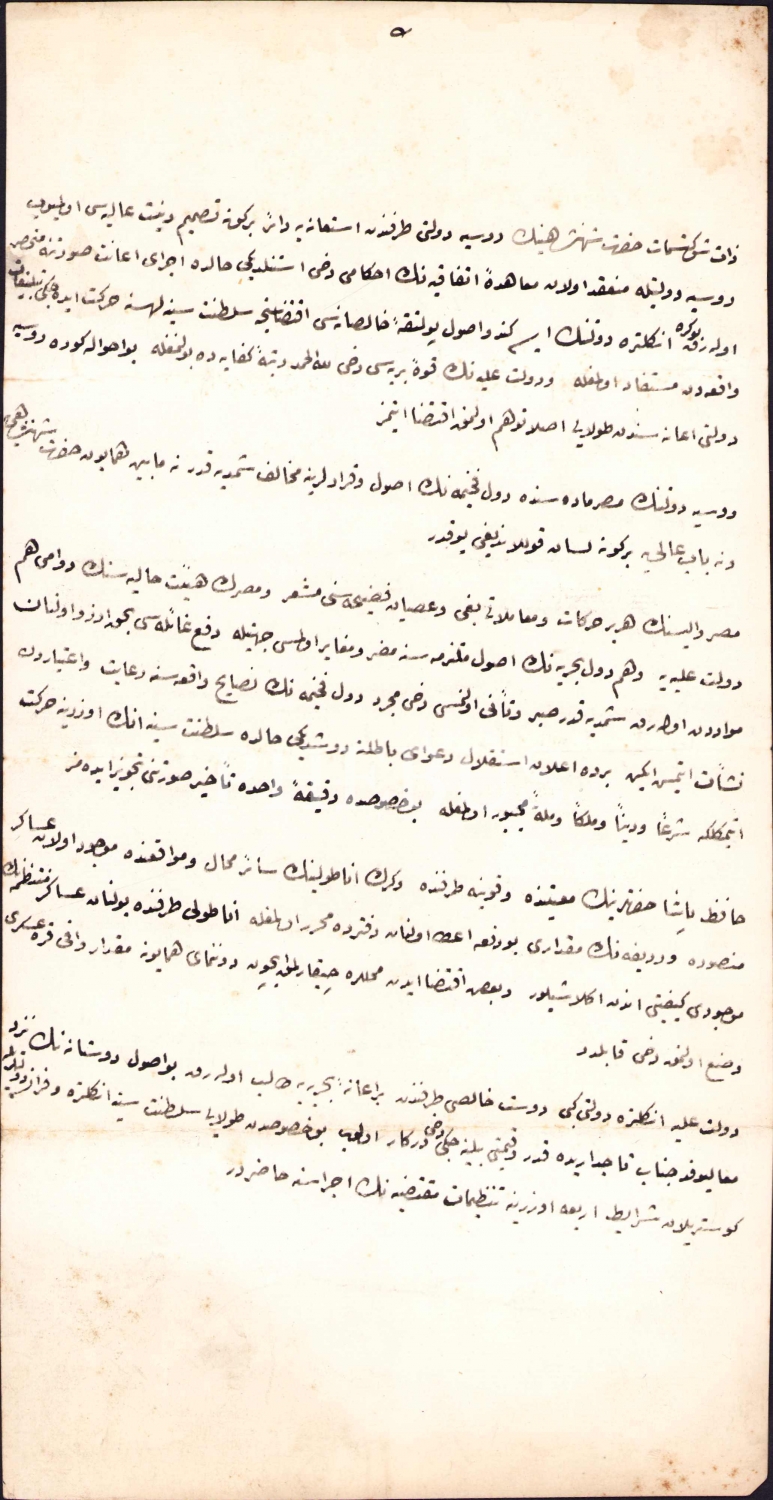 ذات شوكتسمات حضرت شهنشاهينك روسيه دولتى طرفندن استعانه يه دائر بركونه تصميم ونيت عاليه سى اولميوب
روسيه دولتيله منعقد اولان معاهدهٔ اتفاقيه نك احكامى دخى استنلديكى حالده اجراى اعانت صورتنه منحصر
اوله رق بوكره انكلتره دولتنك ايسه كندو اصول پولتقهٔ خالصانه سى اقتضاسنجه سلطنت سنيه لهنه حركت ايده جكى تبليغات
واقعه دن مستفاد اولمغله ودولت عليه نك قوهٔ بريه سى دخى لله الحمد رتبهٔ كفايه ده بولنمغله بو احواله كوره روسيه
دولتى اعانه سندن طولايى اصلا توهم اولنمق اقتضا ايتمز
روسيه دولتنك مصر ماده سنده دول فخيمه نك اصول وقرارلرينه مخالف شمديه قدر نه مابين همايون حضرت شهنشاهى يه
ونه باب عالى يه بركونه لسان قوللانديغى يوقدر
مصر واليسنك هر بر حركات ومعاملاتى بغى وعصيان فضيحه سنى مشعر ومصرك هيئت حاليه سنك دوامى هم
دولت عليه يه وهم دول بحريه نك اصول ملتزمه سنه مضر ومغاير اولمسى جهتيله دفع غائله سى بحق ارزو اولنان
موادن اوله رق شمديه قدر صبر وتأنى اولنمسى دخى مجرد دول فخيمه نك نصايح واقعه سنه رعايت واعتباردن
نشأت ايتمس ايكن برده اعلان استقلال دعواى باطلنه دوشديكى حالده سلطنت سنيه انك اوزرينه حركت
ايتمكلكه شرعاً وديناً وملكاً وملةً مجبور اولمغله بو خصوصده دقيقهٔ واحده تأخير صورتنى تجويز ايده مز
حافظ پاشا حضرتلرينك معيتنده وقونيه طرفنده وكرك اناطولينك سائر محال ومواقعنده موجود اولان عساكر
منصوره ورديفه نك مقدارى بو دفعه اعطا اولنان دفترده محرر اولمغله اناطولى طرفنده بولنان عساكر منتظمه نك
موجودى كيفيتى اندن اكلاشيلور وبعض اقتضا ايدن محللره چيقارلمق ايچون دونماى همايونه مقدار وافى قره عسكرى
وضع اولنمق دخى قابلدر
دولت عليه انكلتره دولتى كبى دوست خالصى طرفندن براعانهٔ بحريه يه طالب اوله رق بو اصول دوستانه نك نزد
معاليوفد جناب تاجداريده قدر وقيمتى بيلينه جكى دخى دركار اولوب بو خصوصدن طولايى سلطنت سنيه انكلتره وفرانسه دولتلرينه
كوستريلان شرايط اربعه اوزرينه تنظيمات مقتضيه نك اجراسنه حاضردر